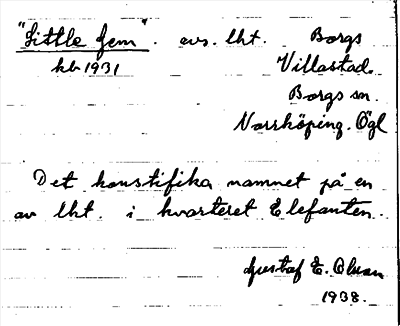 "Little fem". avs. lht. Borgs
kb 1931 Villastad.
Borgs sn.
Norrköping. Ögl
Det konstifika namnet på en
av lht. i kvarteret Elefanten.
Gustaf E. Olsson
1938.